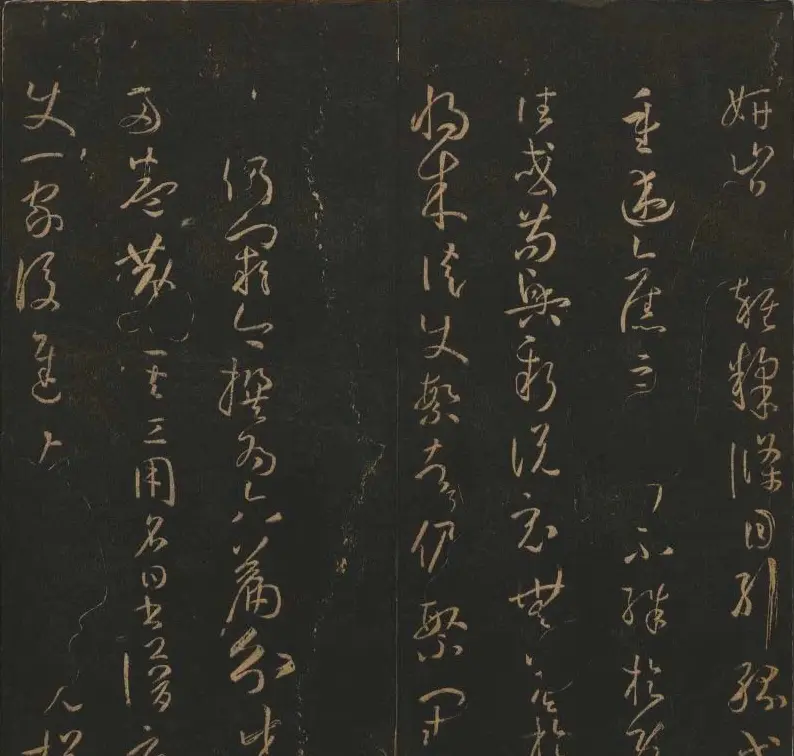 妍蚩雜糅條目糾紛
重述舊章了不殊於
往或苟興新說竟無益於
將來徒使繁者彌繁闕
仍闕今撰為六篇分成
兩卷第其工用名曰書譜
使一家後進